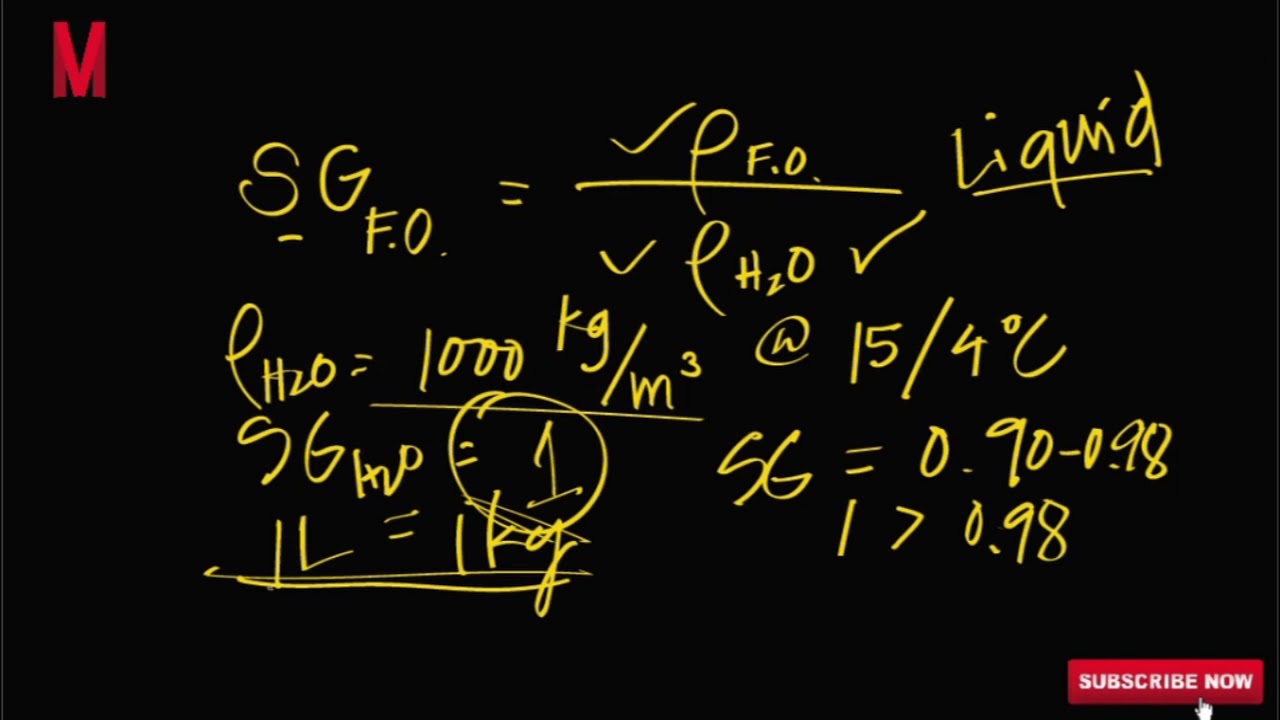 M
SG F.O. = ρ F.O. / ρ H₂O Liquid
ρ H₂O = 1000 kg/m³ @ 15/4°C
SG H₂O = 1 SG = 0.90-0.98
1L = 1kg 1 > 0.98
SUBSCRIBE NOW